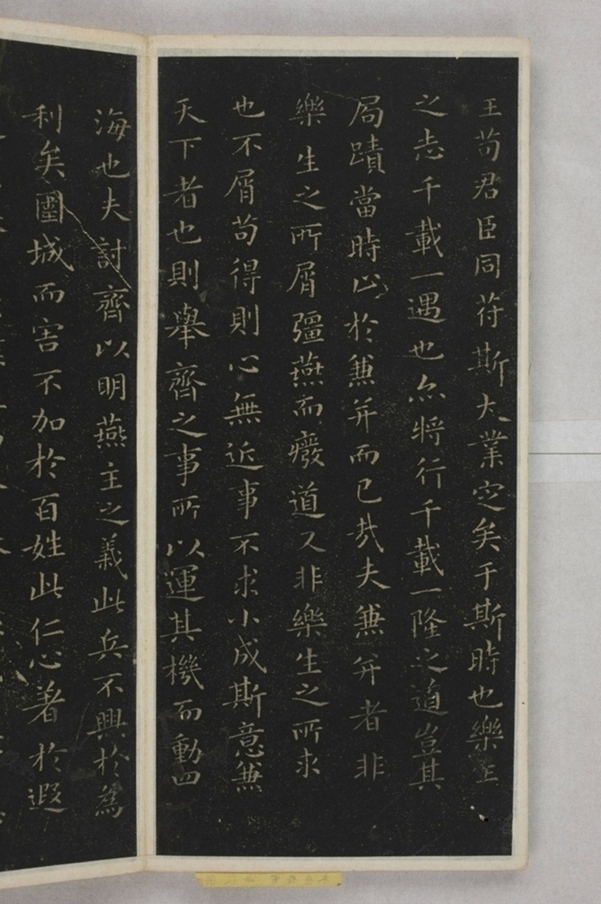 王苟君臣同符斯大業定矣于斯時也樂生
之志千載一遇也亦將行千載一隆之道豈其
局蹟當時止於兼并而已哉夫兼并者非
樂生之所屑彊燕而癈道又非樂生之所求
也不屑苟得則心無近事不求小成斯意兼
天下者也則舉齊之事所以運其機而動四
海也夫討齊以明燕主之義此兵不興於為
利矣圍城而害不加於百姓此仁心著於遐